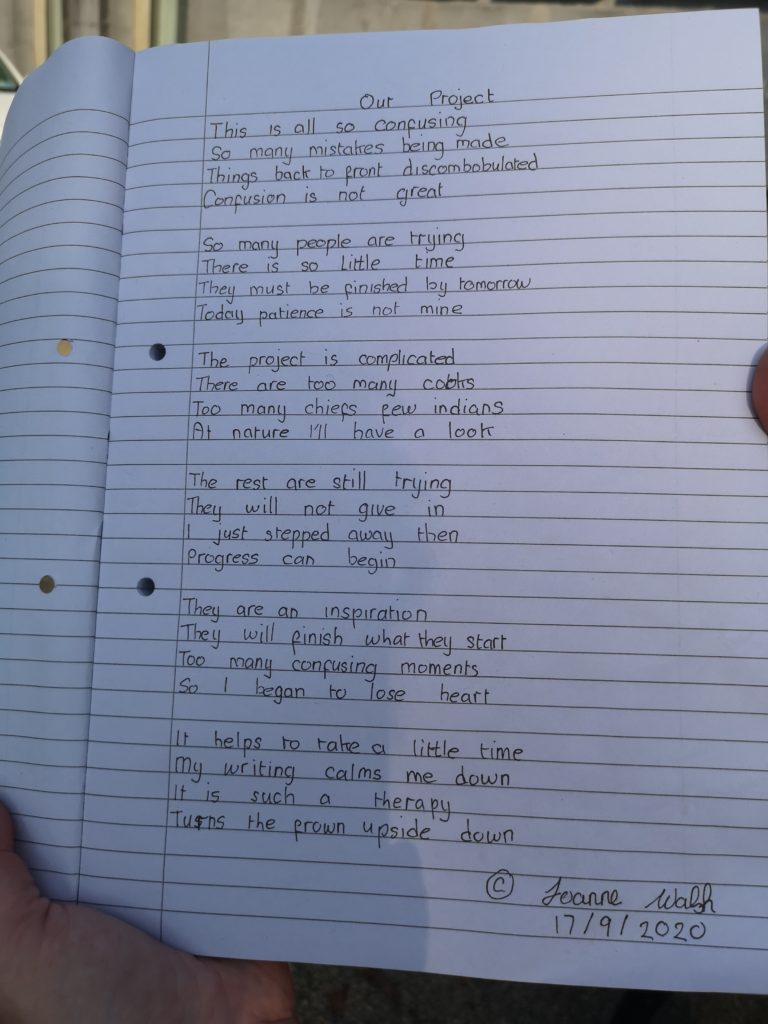 Our Project
This is all so confusing
So many mistakes being made
Things back to front discombobulated
Confusion is not great
So many people are trying
There is so little time
They must be finished by tomorrow
Today patience is not mine
The project is complicated
There are too many cooks
Too many chiefs few indians
At nature I'll have a look
The rest are still trying
They will not give in
I just stepped away then
Progress can begin
They are an inspiration
They will finish what they start
Too many confusing moments
So I began to lose heart
It helps to take a little time
My writing calms me down
It is such a therapy
Turns the frown upside down
© Joanne Walsh
17/9/2020